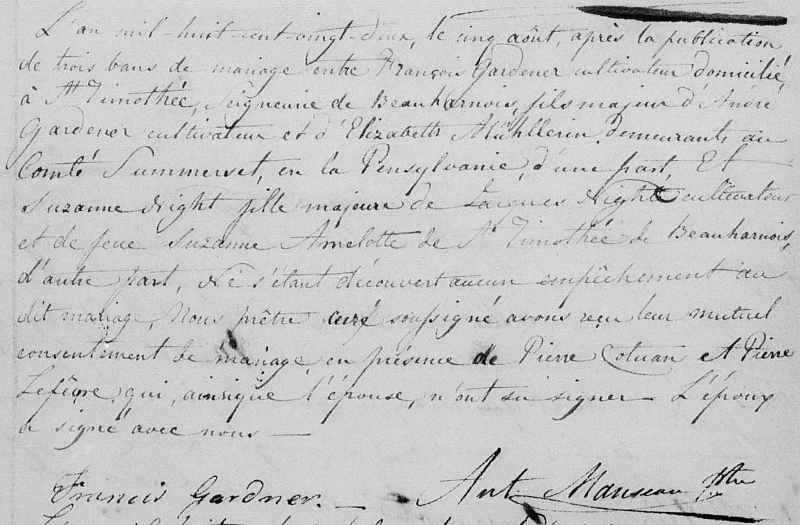 L'an mil-huit-cent-vingt-deux, le cinq août, après la publication
de trois bans de mariage entre François Gardener cultivateur domicilié
à St Timothée, Seigneurie de Beauharnois, fils majeur d'André
Gardener cultivateur et d'Elizabeth Mühllerin demeurants au
Comté Summerset, en la Pensylvanie, d'une part, Et
Suzanne Night fille majeure de Jacques Night cultivateur
et de feue Suzanne Amelotte de St Timothée de Beauharnois,
d'autre part, Ne s'étant découvert aucun empêchement au
dit mariage, Nous prêtre curé soussigné avons reçu leur mutuel
consentement de mariage en présence de Pierre Cotuan et Pierre
Lefêvre qui, ainsique l'épouse, n'ont su signer — L'époux
a signé avec nous —
Francis Gardner. — Ant Manseau Ptre